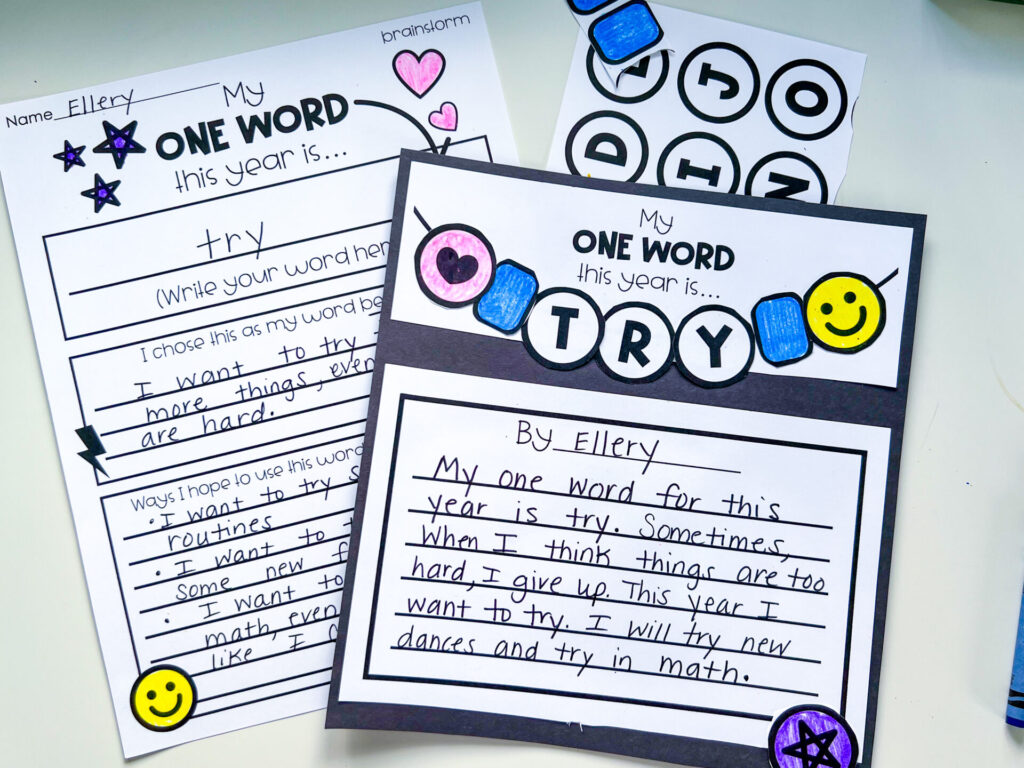 brainstorm
Name Ellery
My
ONE WORD
this year is...
try
(Write your word her
I chose this as my word be
I want to try
more things, even
are hard.
Ways I hope to use this word
• I want to try
routines
• I want to
some new
• I want to
math, even
like I
J
O
D
I
N
My
ONE WORD
this year is...
TRY
By Ellery
My one word for this
year is try. Sometimes,
when I think things are too
hard, I give up. This year I
want to try. I will try new
dances and try in math.